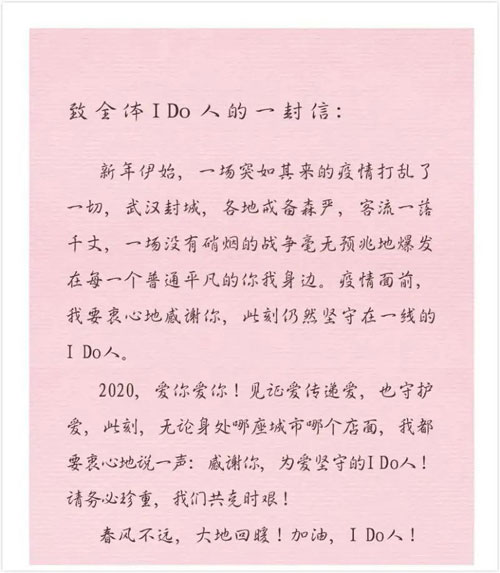 致全体I Do 人的一封信：
新年伊始，一场突如其来的疫情打乱了
一切，武汉封城，各地戒备森严，客流一落
千丈，一场没有硝烟的战争毫无预兆地爆发
在每一个普通平凡的你我身边。疫情面前，
我要衷心地感谢你，此刻仍然坚守在一线的
I Do人。
2020，爱你爱你！见证爱传递爱，也守护
爱，此刻，无论身处哪座城市哪个店面，我都
要衷心地说一声：感谢你，为爱坚守的I Do人！
请务必珍重，我们共克时艰！
春风不远，大地回暖！加油，I Do人！